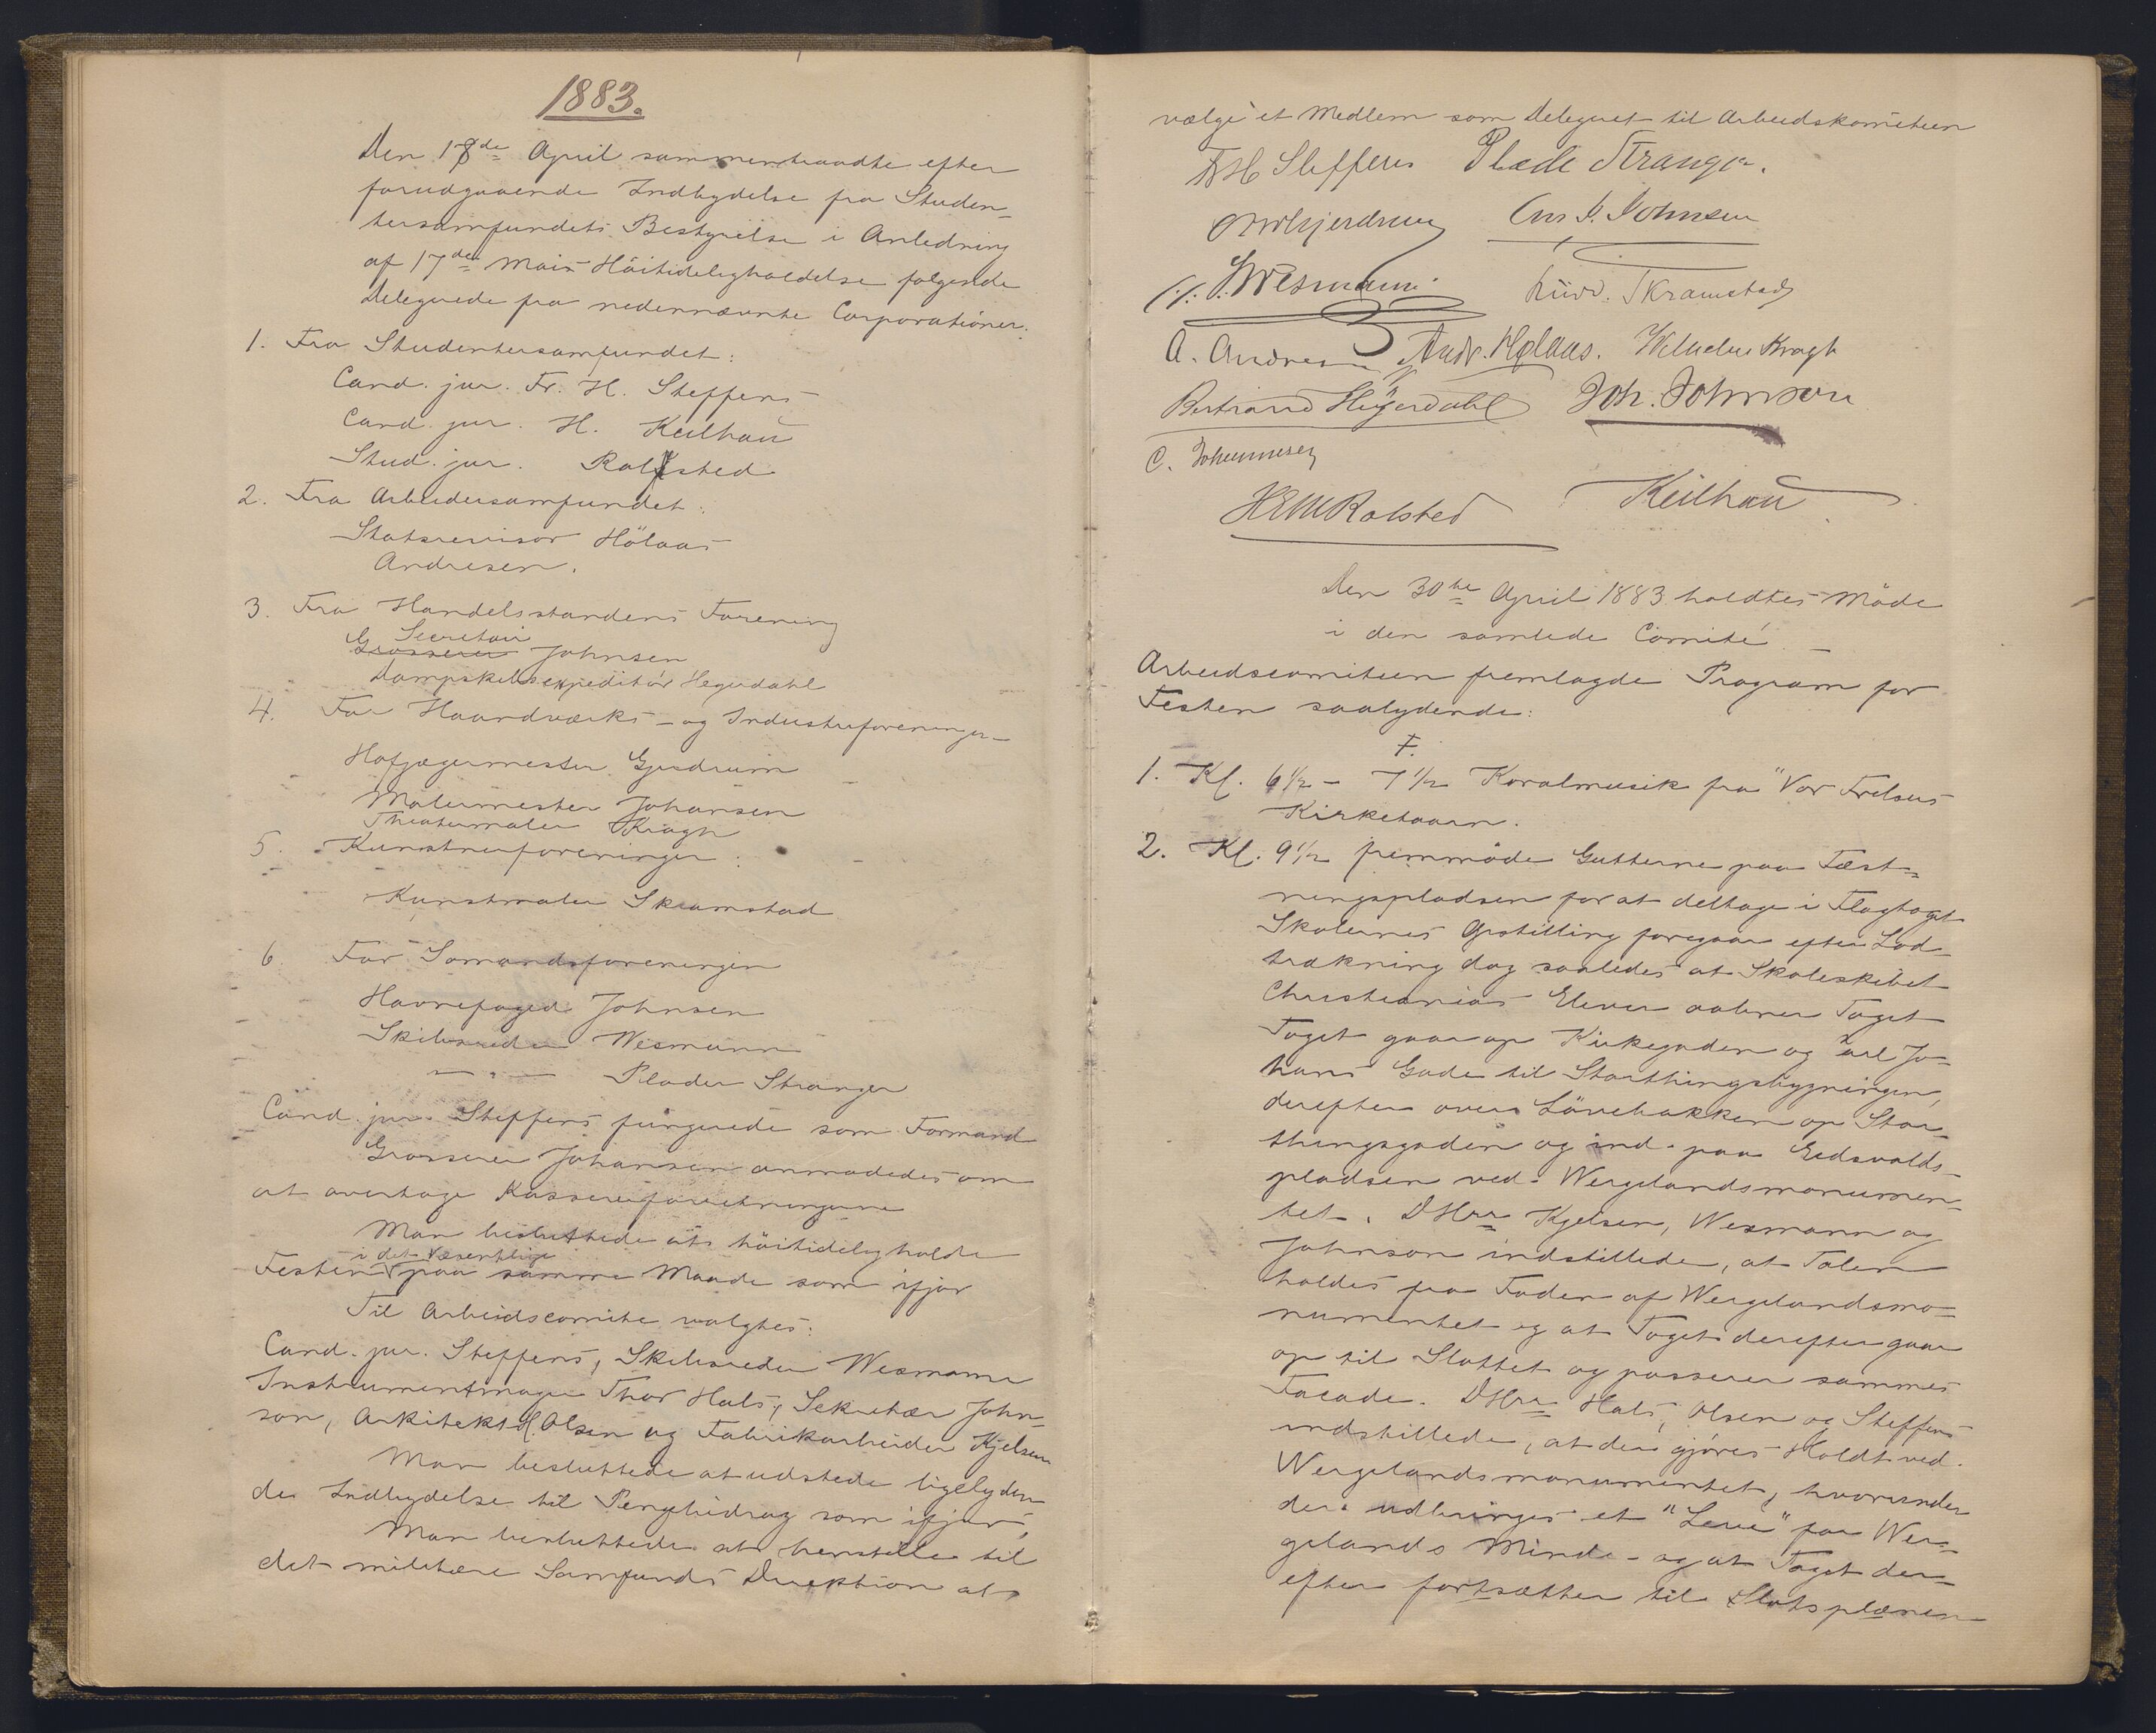 1883.
Den 18de April sammentraadte efter
forudgaaende Indbydelse fra Studen-
tersamfundets Bestyrelse i Anledning
af 17de Mais Höitideligholdelse følgende
Delegerede fra nedennævnte Corporationer.
1. Fra Studentersamfundet:
Cand. jur. Fr. H. Steffens
Cand. jur. H. Keilhau
Stud. jur. Rolsted
2. Fra Arbeidersamfundet:
Statsrevisor Hölaas
Andresen.
3. Fra Handelsstandens Forening
Secretair
Grosserer Johnsen
Dampskibsexpeditör Heyerdahl
4. For Haandværks- og Industriforeningen
Hofjægermester Gjerdrum
Malermester Johansen
Theatermaler Krogh
5. Kunstnerforeningen:
Kunstmaler Skramstad
6. For Sømandsforeningen
Havnefoged Johnsen
Skibsreder Wesmann
— " — Plade Stranger
Cand. jur. Steffens fungerede som Formand
Grosserer Johansen anmodedes om
at overtage Kassererforretningerne
Man besluttede at höitideligholde
i det Væsentlige
Festen paa samme Maade som ifjor
Til Arbeidscomite valgtes:
Cand. jur. Steffens, Skibsreder Wesmann
Instrumentmager Thor Hals, Sekretær John-
son, Arkitekt H. Olsen og Fabrikarbeider Kjelsen
Man besluttede at udstede ligelyden-
de Indbydelse til Pengebidrag som ifjor.
Man besluttede at henstille til
det militære Samfunds Direktion at
vælge et Medlem som Delegeret til Arbeidskomiteen
Fr H Steffens Plade Stranger.
Gjerdrum Chr. J. Johnsen
J. Wesmann Ludv. Skramstad
A. Andresen Andr. Hølaas. Wilhelm Krogh
Bertrand Heyerdahl Joh. Johnson
C. Johannesen
HEM Rolsted Keilhau
Den 30te April 1883 holdtes Möde
i den samlede Comité.
Arbeidscomiteen fremlagde Program for
Festen saalydende:
F.
1. Kl. 6½ - 7½ Koralmusik fra "Vor Frelsers
Kirketaarn.
2. Kl. 9½ fremmöde Gutterne paa Fæst-
ningspladsen for at deltage i Flagtoget
Skolernes Opstilling foregaar efter Lod-
trækning dog saaledes at Skoleskibet
Christianias Elever aabner Toget
Toget gaar op Kirkegaden og Carl Jo-
hans Gade til Storthingsbygningen,
derefter over Lövebakken op Stor-
thingsgaden og ind paa Eidsvolds-
pladsen ved Wergelandsmonumen-
tet. DHrr Kjelsen, Wesmann og
Johnson indstillede, at Talen
holdes fra Foden af Wergelandsmo-
numentet og at Toget derefter gaar
op til Slottet og passerer sammes
Facade. DHrr Hals, Olsen og Steffens
indstillede, at der gjöres Holdt ved
Wergelandsmonumentet, hvorunder
der udbringes et "Leve" for Wer-
gelands Minde - og at Toget der-
efter fortsætter til Slotsplænen